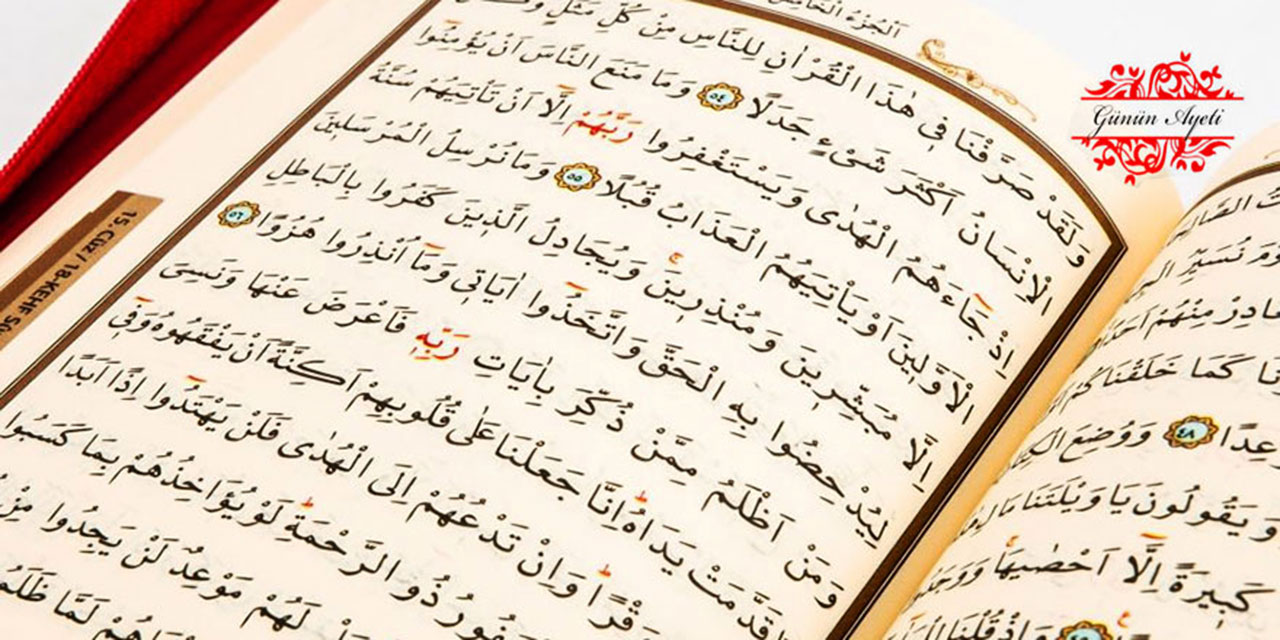 اَلْجُزْءُ الْخَامِسَ
وَلَقَدْ صَرَّفْنَا فِى هٰذَا الْقُرْاٰنِ لِلنَّاسِ مِنْ كُلِّ مَثَلٍ وَكَانَ
الْاِنْسَانُ اَكْثَرَ شَىْءٍ جَدَلًا ﴿٥٤﴾ وَمَا مَنَعَ النَّاسَ اَنْ يُؤْمِنُوا
اِذْ جَاءَهُمُ الْهُدٰى وَيَسْتَغْفِرُوا رَبَّهُمْ اِلَّا اَنْ تَاْتِيَهُمْ سُنَّةُ
الْاَوَّلِينَ اَوْ يَاْتِيَهُمُ الْعَذَابُ قُبُلًا ﴿٥٥﴾ وَمَا نُرْسِلُ الْمُرْسَلِينَ
اِلَّا مُبَشِّرِينَ وَمُنْذِرِينَ وَيُجَادِلُ الَّذِينَ كَفَرُوا بِالْبَاطِلِ
لِيُدْحِضُوا بِهِ الْحَقَّ وَاتَّخَذُوا اٰيَاتِى وَمَا اُنْذِرُوا هُزُوًا ﴿٥٦﴾
وَمَنْ اَظْلَمُ مِمَّنْ ذُكِّرَ بِاٰيَاتِ رَبِّهِ فَاَعْرَضَ عَنْهَا وَنَسِىَ
مَا قَدَّمَتْ يَدَاهُ اِنَّا جَعَلْنَا عَلٰى قُلُوبِهِمْ اَكِنَّةً اَنْ يَفْقَهُوهُ وَفِى
وَقْرًا وَاِنْ تَدْعُهُمْ اِلَى الْهُدٰى فَلَنْ يَهْتَدُوا اِذًا اَبَدًا
ذُو الرَّحْمَةِ لَوْ يُؤَاخِذُهُمْ بِمَا كَسَبُوا
لَهُمْ مَوْعِدٌ لَنْ يَجِدُوا مِنْ
لَمَّا ظَلَمُوا
15. Cüz / 18-KEHF
Günün Ayeti
نُسَيِّرُ
مِنْهُمْ
كَمَا خَلَقْنَاكُمْ
﴿٤٨﴾ وَوُضِعَ
وَيَقُولُونَ يَا وَيْلَتَنَا
كَبِيرَةً اِلَّا اَحْصٰيهَا
وَاِذْ قُلْنَا